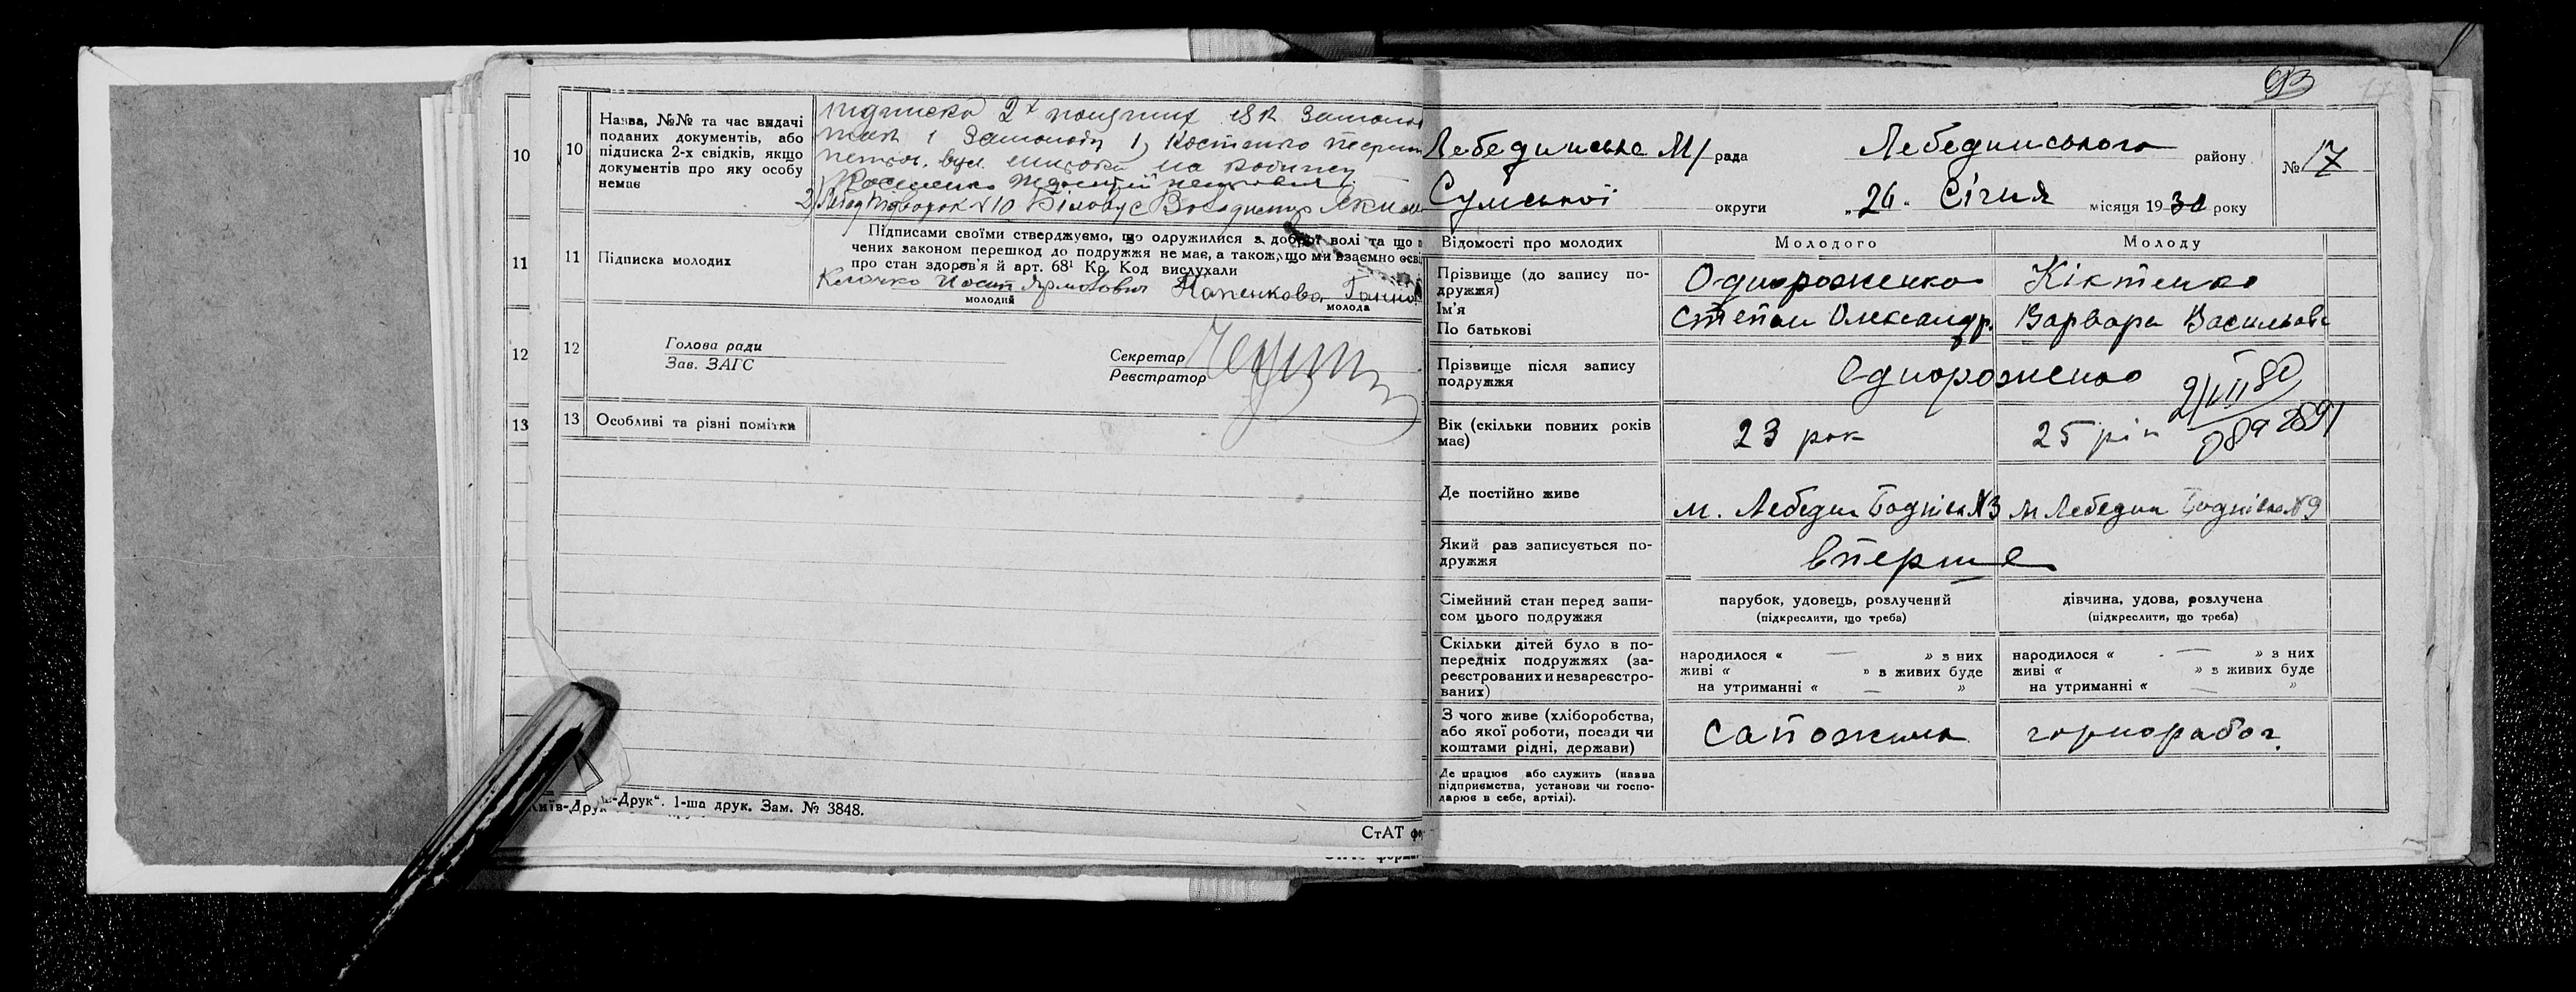 10
10
Назва, №№ та час видачі
поданих документів, або
підписка 2-х свідків, якщо
документів про яку особу
немає
підписка 2х понятих як
1 1) Костенко
вул. на
2) №10 Біловус Володимир
11
11
Підписка молодих
Підписами своїми стверджуємо, що одружилися з доброї волі та що
чених законом перешкод до подружжя не має, а також, що ми взаємно осві
про стан здоров'я й арт. 68¹ Кр. Код вислухали
Клочко Йосип Ярмолович Папенкова Ганна
молодий
молода
12
12
Голова ради
Зав. ЗАГС
Секретар
Реєстратор
13
13
Особливі та різні помітки
Київ-Друк
-Друк". 1-ша друк. Зам. № 3848.
СтАТ фо
Лебединська М/рада Лебединського району
№ 17
Сумської округи „26" Січня місяця 1930 року
Відомості про молодих
Молодого
Молоду
Прізвище (до запису по-
дружжя)
Ім'я
По батькові
Однороженко
Степан Олександр.
Кіктенко
Варвара Васильовн
Прізвище після запису
подружжя
Однороженко
Вік (скільки повних років
має)
23 рок
25 рік
2891
Де постійно живе
м. Лебедин №3
м Лебедин №9
Який раз записується по-
дружжя
вперше
Сімейний стан перед запи-
сом цього подружжя
парубок, удовець, розлучений
(підкреслити, що треба)
дівчина, удова, розлучена
(підкреслити, що треба)
Скільки дітей було в по-
передніх подружжях (за-
реєстрованих и незареєстро-
ваних)
народилося « — » з них
живі « » з живих буде
на утриманні « — »
народилося « — » з них
живі « » з живих буде
на утриманні « — »
З чого живе (хліборобства,
або якої роботи, посади чи
коштами рідні, держави)
сапожник
чорнорабоч.
Де працює або служить (назва
підприємства, установи чи госпо-
дарює в себе, артілі).